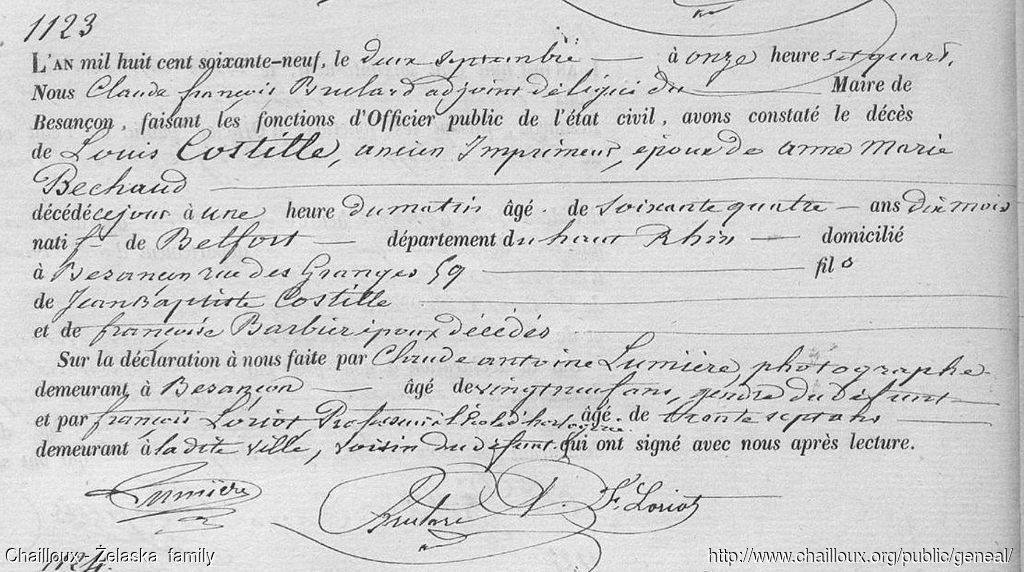 1123
L'AN mil huit cent soixante-neuf, le deux septembre — à onze heures et quart,
Nous Claude françois Brulard adjoint délégué du — Maire de
Besançon, faisant les fonctions d'Officier public de l'état civil, avons constaté le décès
de Louis Costille, ancien Imprimeur, époux de anne Marie
Bechaud —
décédé cejour à une heure du matin âgé de soixante quatre — ans dix mois
natif — de Belfort — département du haut Rhin — domicilié
à Besançon rue des Granges 59 — fils
de Jean Baptiste Costille
et de françoise Barbier époux décédés
Sur la déclaration à nous faite par Claude antoine Lumière, photographe
demeurant à Besançon — âgé de vingt neuf ans, gendre du défunt —
et par françois Loriot Professeur à l'école d'horlogerie âgé de trente sept ans —
demeurant à la dite ville, voisin du défunt qui ont signé avec nous après lecture.
Lumière Brulard F. Loriot
Chailloux - Żelaska family http://www.chailloux.org/public/geneal/